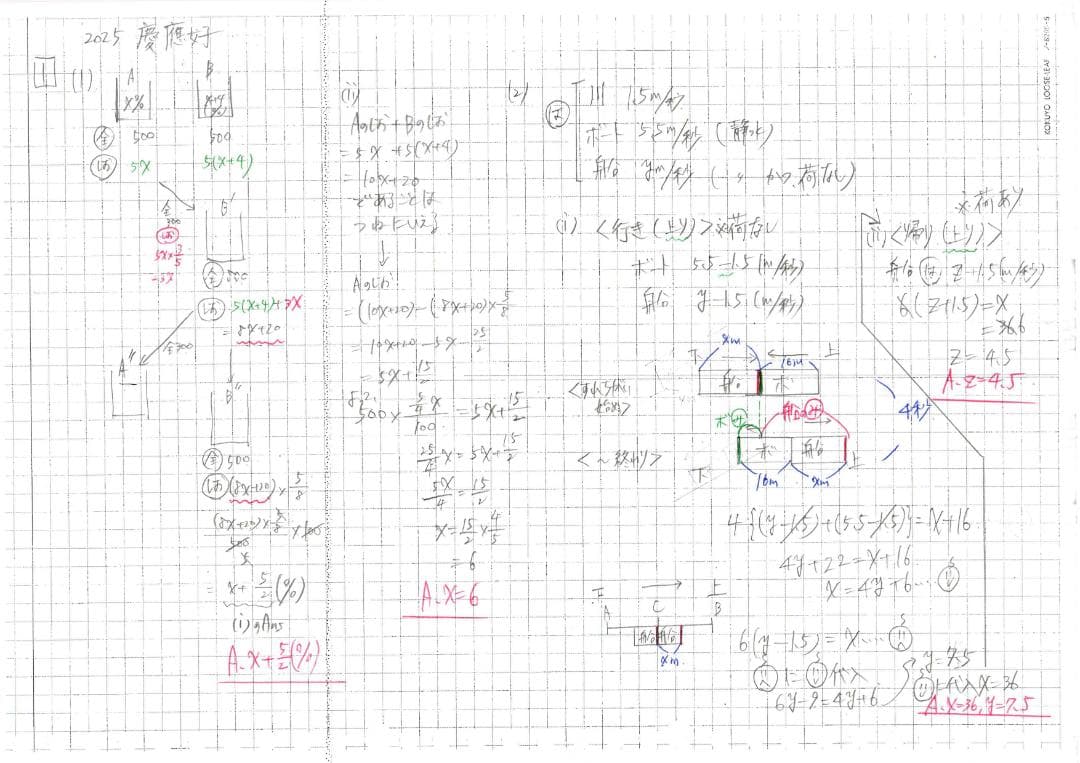 2025 慶應女子
KOKUYO LOOSE-LEAF
1 (1)
A B
x% x+4 (%)
全 500 500
しお 5x 5(x+4)
全300
しお
5x×3/5
=3x
B'
全 800
しお 5(x+4)+3x
= 8x+20
全300
A"
B"
全 500
しお (8x+20)×5/8
(8x+20)×5/8/500×100
5
= x+5/2 (%)
(i)のAns
A. x+5/2(%)
(ii)
Aのしお+Bのしお
=5x+5(x+4)
=10x+20
であることは
つねにいえる
↓
Aのしお
=(10x+20)-(8x+20)×5/8
=10x+20-5x-25/2
=5x+15/2
よって
500×5/4x/100=5x+15/2
25/4x=5x+15/2
5x/4=15/2
x=15/2×4/5
=6
A. x=6
(2)
は 川 1.5m/秒
ボート 5.5m/秒 (静水)
船 ym/秒 (〃 かつ荷なし)
(i) <行き(上り)>※荷なし
ボート 5.5-1.5(m/秒)
船 y-1.5(m/秒)
xm 16m
下 → ← 上
船 ボ
<すれちがい始め>
4秒
ボのは 船のは
ボ 船
<〜終わり>
下 16m xm 上
4{(y-1.5)+(5.5-1.5)}=x+16
4y+22=x+16
x=4y+6…
下 → 上
A C B
船 船
xm
6(y-1.5)=x…
に 代入
6y-9=4y+6
y=7.5
に代入x=36
A. x=36, y=7.5
※荷あり
(ii)<帰り(上り)>
船 は z+1.5(m/秒)
6(z+1.5)=x
=36
z=4.5
A. z=4.5